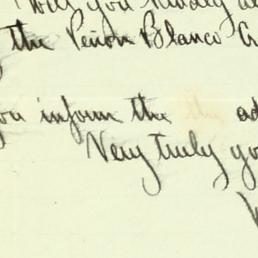 Will you kindly
the Peñon Blanco
you inform the the ad
Very truly yo